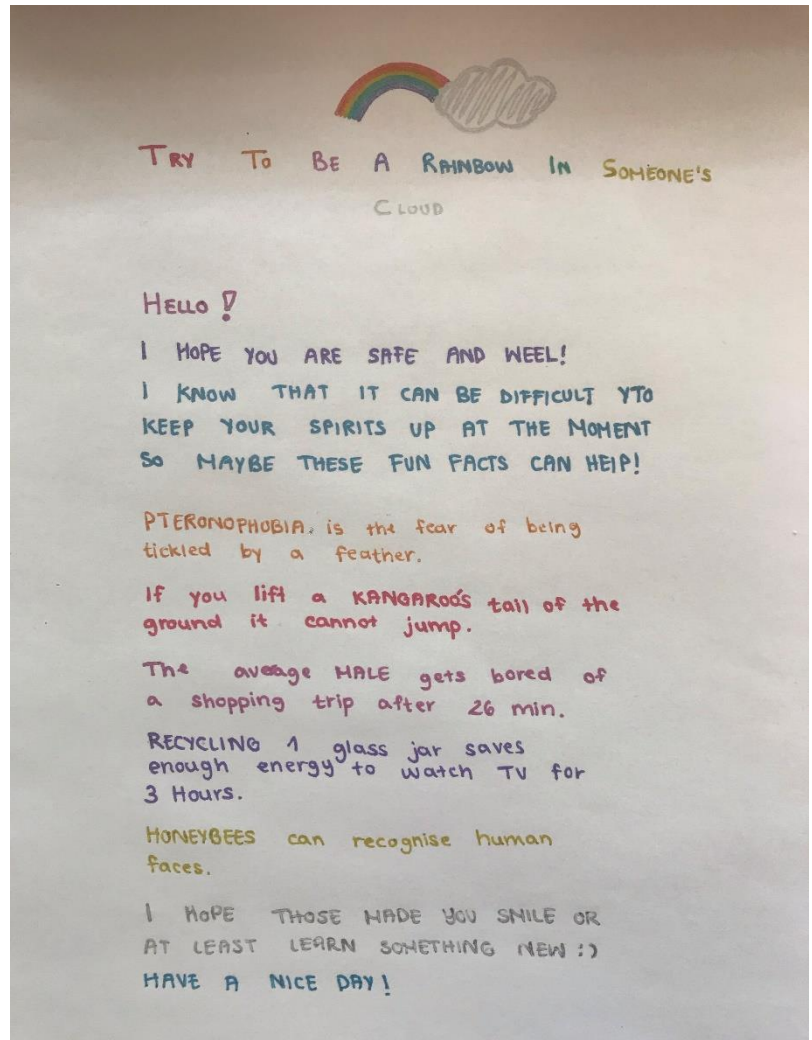 TRY TO BE A RAINBOW IN SOMEONE'S
CLOUD
HELLO!
I HOPE YOU ARE SAFE AND WEEL!
I KNOW THAT IT CAN BE DIFFICULT YTO
KEEP YOUR SPIRITS UP AT THE MOMENT
SO MAYBE THESE FUN FACTS CAN HElP!
PTERONOPHOBIA. is the fear of being
tickled by a feather.
If you lift a KANGAROO'S tail of the
ground it cannot jump.
The aveage MALE gets bored of
a shopping trip after 26 min.
RECYCLING 1 glass jar saves
enough energy to watch TV for
3 Hours.
HONEYBEES can recognise human
faces.
I HOPE THOSE MADE YOU SMILE OR
AT LEAST LEARN SOMETHING NEW :)
HAVE A NICE DAY!